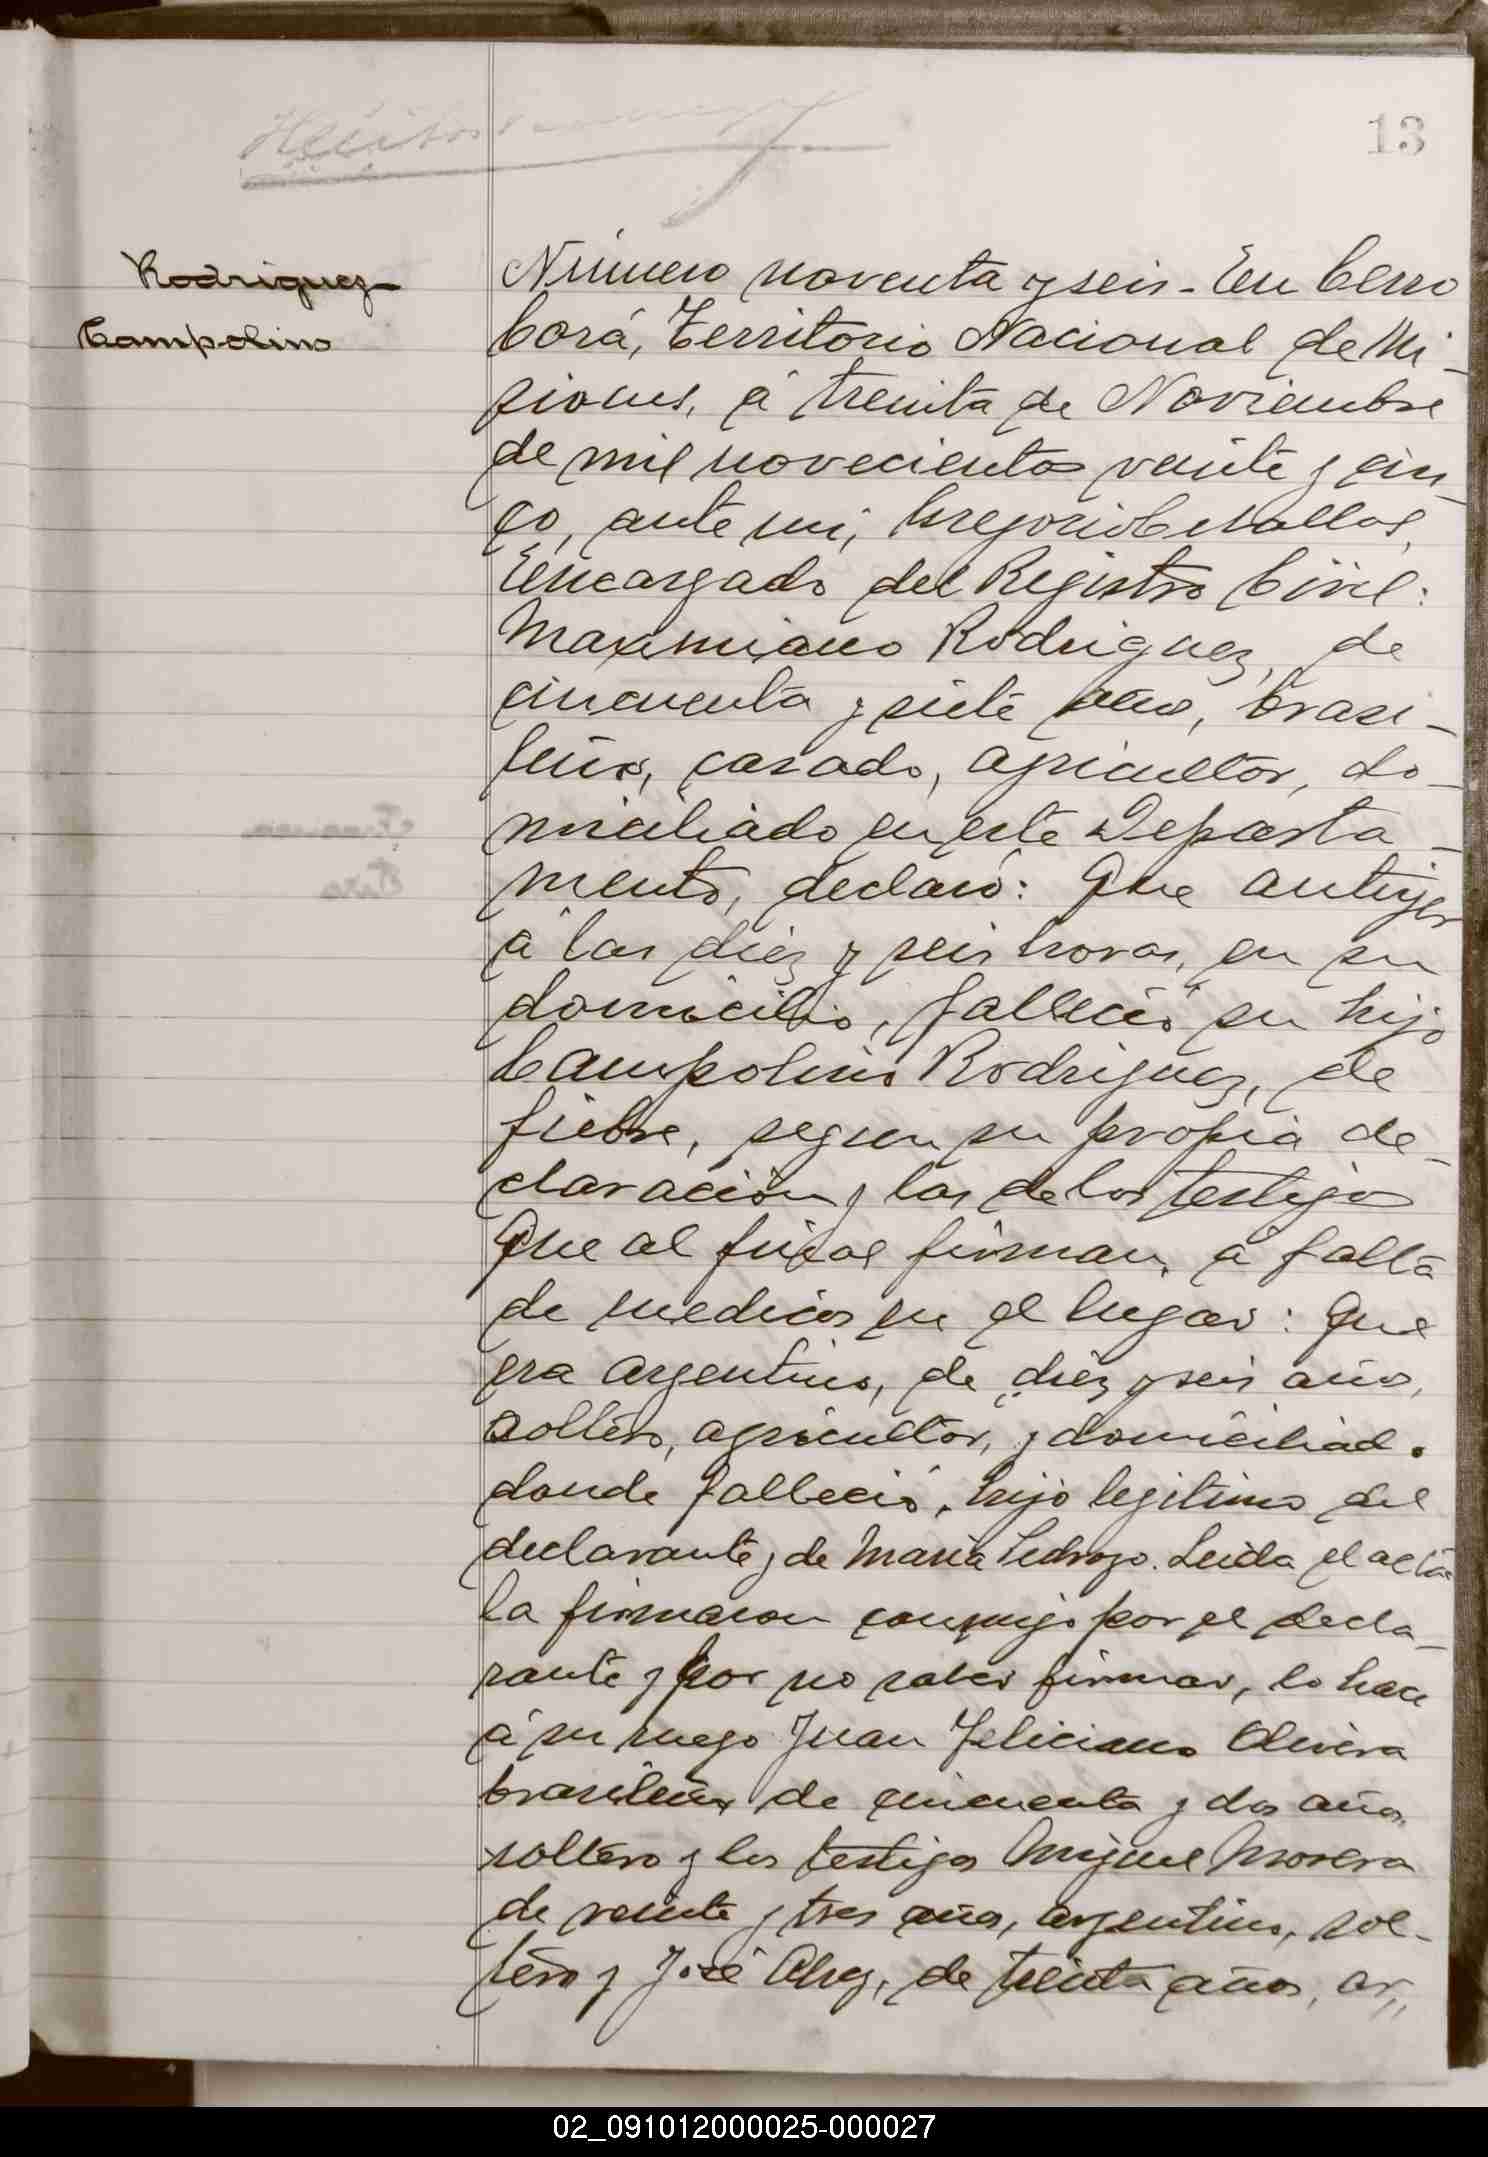 13
Rodriguez
Campolino
Número noventa y seis - En Cerro
Corá, Territorio Nacional de Mi-
siones, á treinta de Noviembre
de mil novecientos veinte y cin-
co, ante mi, Gregorio Cevallos,
Encargado del Registro Civil:
Maxmiano Rodriguez, de
cincuenta y siete años, brasi-
leño, casado, agricultor, do-
miciliado en este Departa-
mento, declaró: Que antiyer
á las diez y seis horas, en su
domicilio, falleció su hijo
Campolino Rodriguez, de
fiebre, segun su propia de-
claración y las de los testigos
que al final firman, a falta
de medicos en el lugar: Que
era argentino, de diez y seis años,
soltero, agricultor, y domiciliado
donde falleció, hijo legitimo del
declarante y de Maria Pedrozo. Leida el acta
la firmaron conmigo por el decla-
rante y por no saber firmar, lo hace
á su ruego Juan Feliciano Olivera
brasileño de cincuenta y dos años,
soltero y los testigos Miguel Morera
de veinte y tres años, argentino, sol-
tero y José de treinta años, ar,,
02_091012000025-000027